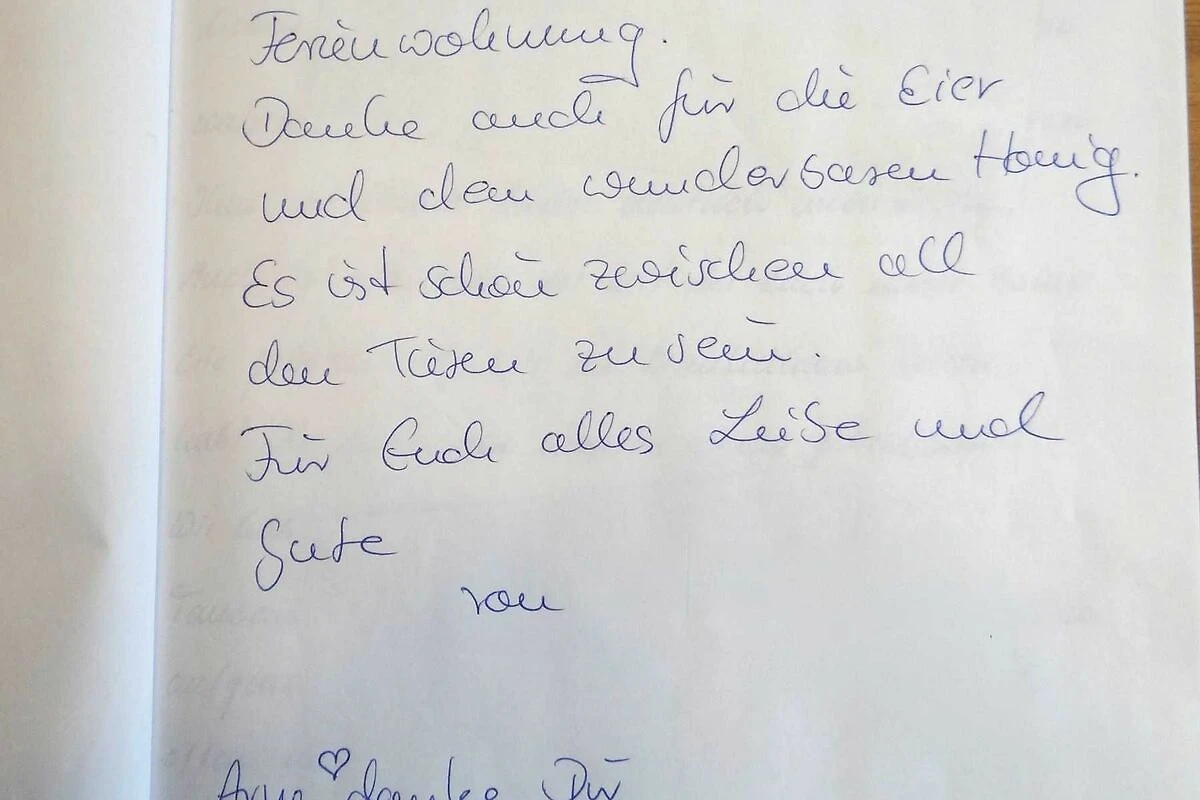 Ferienwohnung.
Danke auch für die Eier
und den wunderbaren Honig.
Es ist schön zwischen all
den Tieren zu sein.
Für Euch alles Liebe und
Gute
von
danke Dir